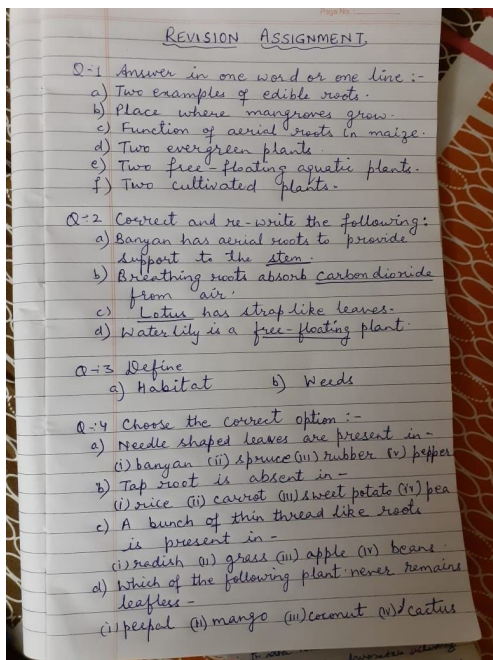 Page No.:
REVISION ASSIGNMENT
Q-1 Answer in one word or one line :-
a) Two examples of edible roots.
b) Place where mangroves grow.
c) Function of aerial roots in maize.
d) Two evergreen plants
e) Two free-floating aquatic plants.
f) Two cultivated plants.
Q-2 Correct and re-write the following:
a) Banyan has aerial roots to provide
support to the stem.
b) Breathing roots absorb carbondioxide
from air.
c) Lotus has strap like leaves.
d) Water lily is a free-floating plant.
Q-3 Define
a) Habitat b) Weeds
Q-4 Choose the correct option :-
a) Needle shaped leaves are present in-
(i) banyan (ii) spruce (iii) rubber (iv) pepper
b) Tap root is absent in -
(i) rice (ii) carrot (iii) sweet potato (iv) pea
c) A bunch of thin thread like roots
is present in -
(i) radish (ii) grass (iii) apple (iv) beans
d) Which of the following plant never remains
leafless -
(i) peepal (ii) mango (iii) coconut (iv) cactus